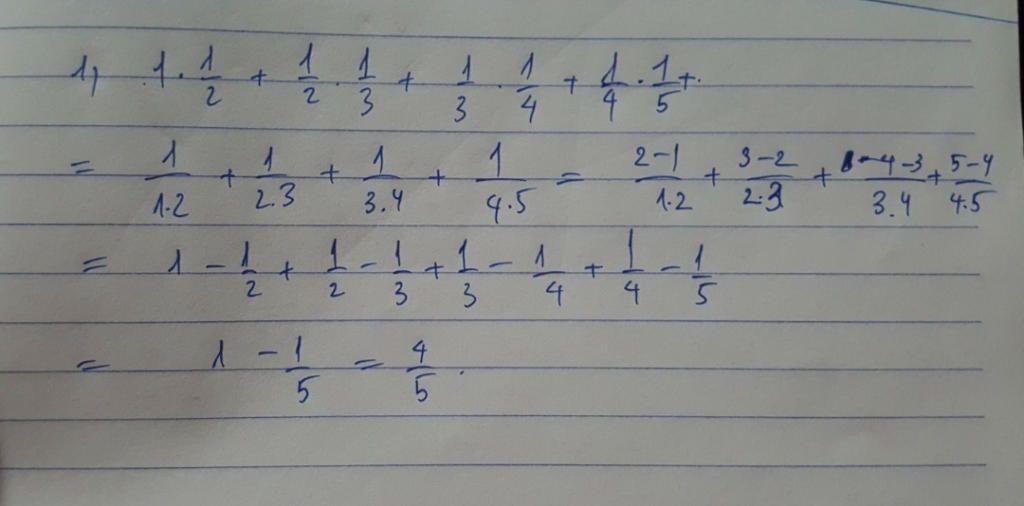 1, 1 · 1/2 + 1/2 · 1/3 + 1/3 · 1/4 + 1/4 · 1/5 +.
= 1/1.2 + 1/2.3 + 1/3.4 + 1/4.5 = 2-1/1.2 + 3-2/2.3 + 4-3/3.4 + 5-4/4.5
= 1 - 1/2 + 1/2 - 1/3 + 1/3 - 1/4 + 1/4 - 1/5
= 1 - 1/5 = 4/5 .